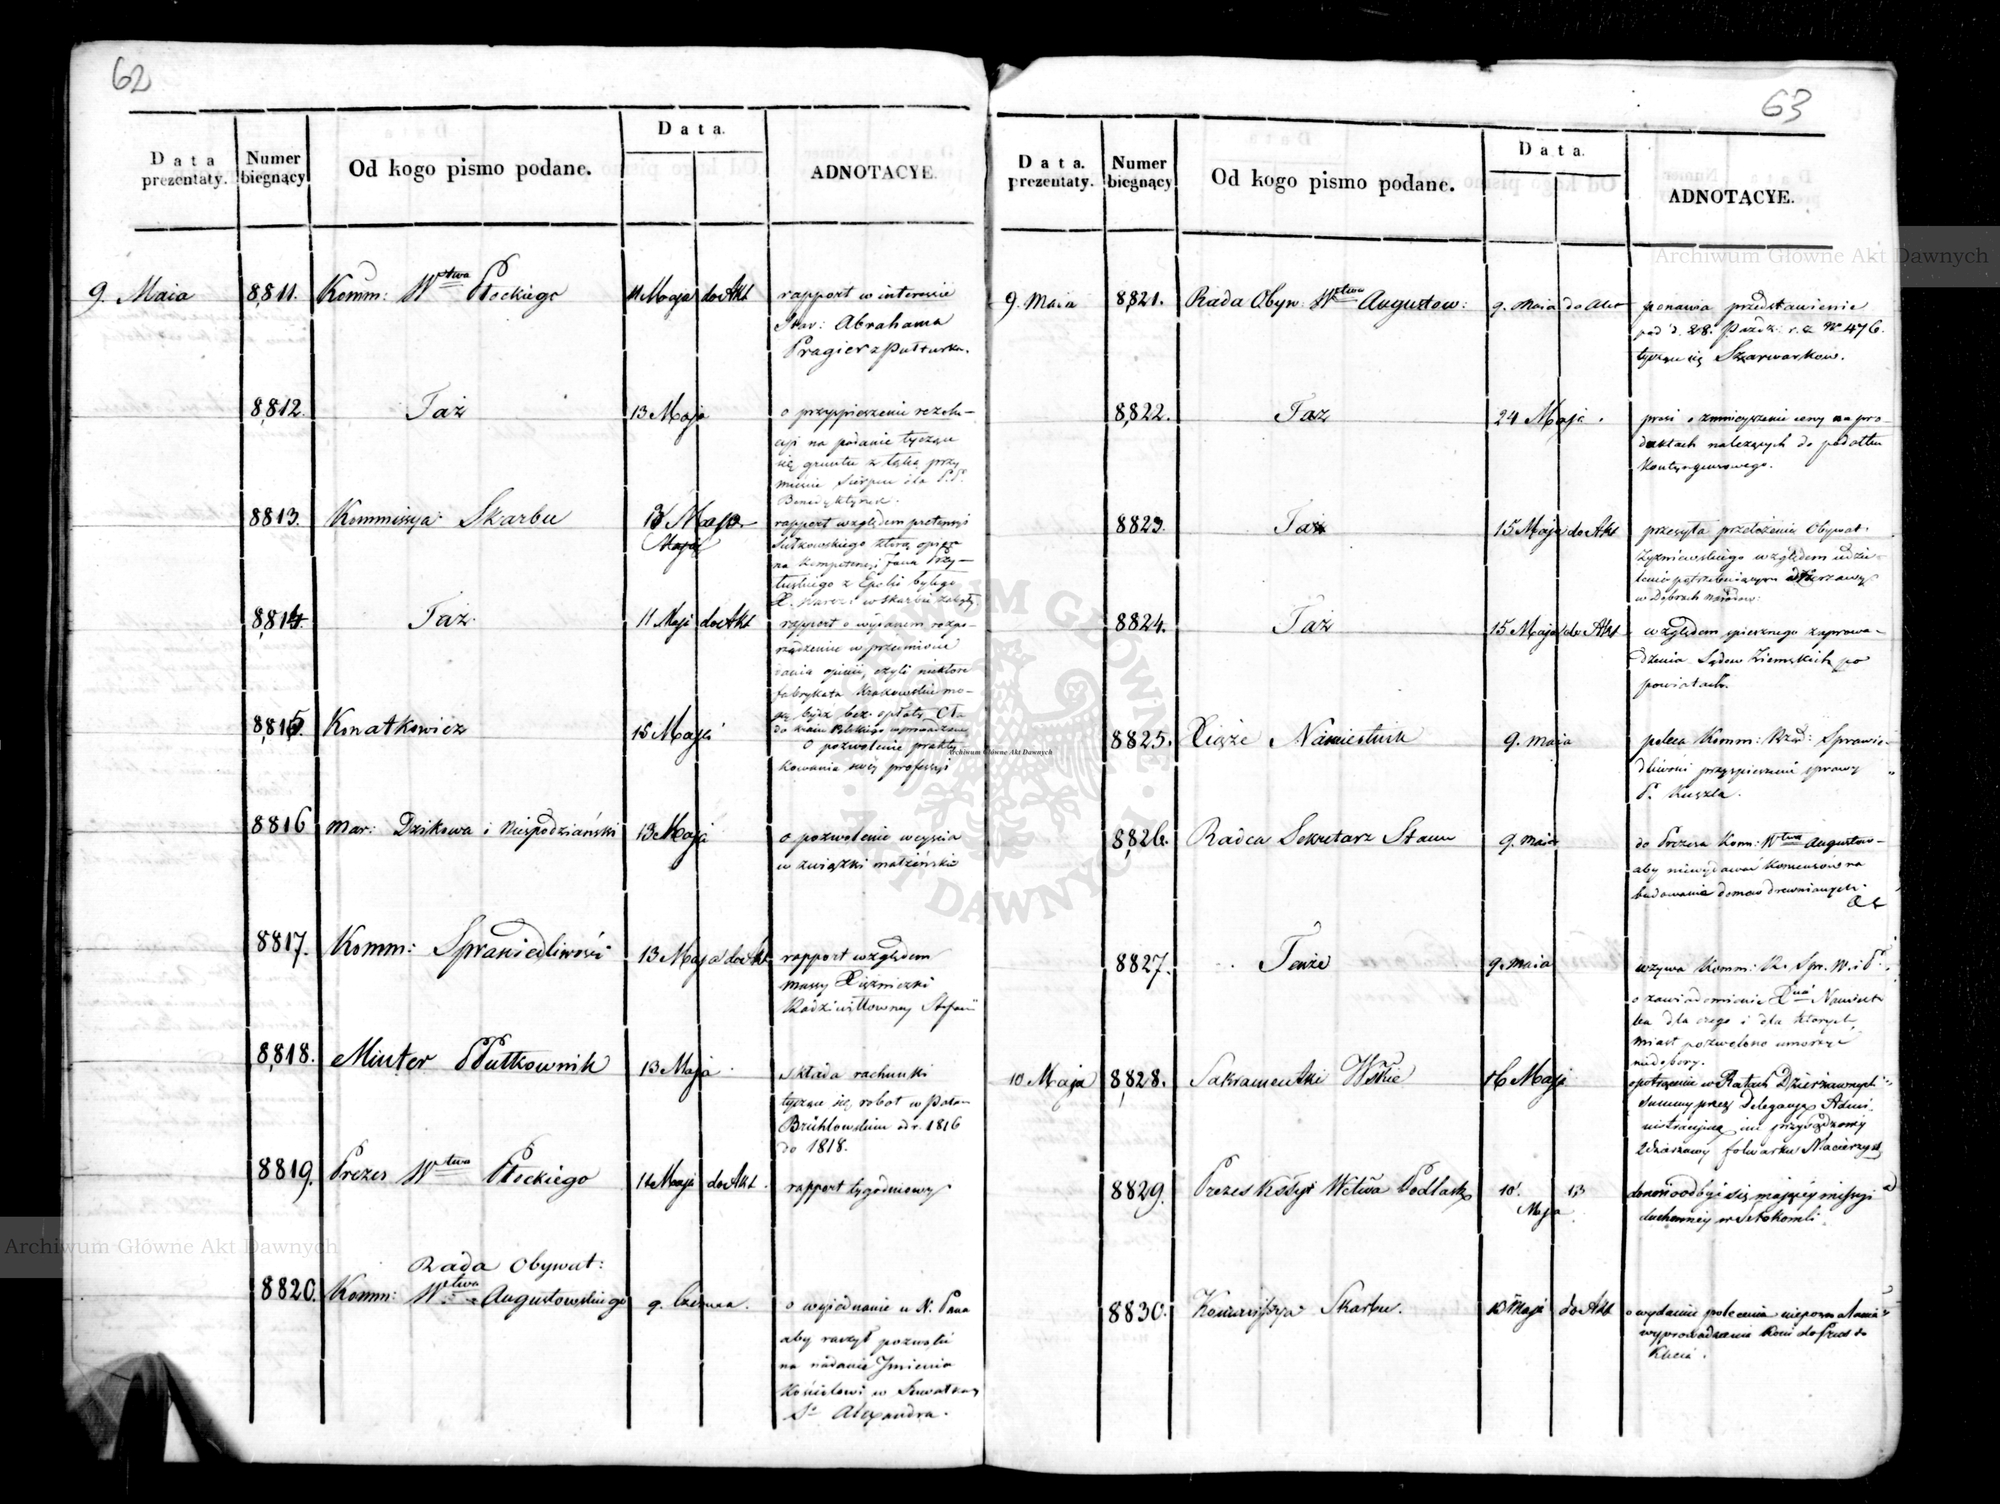 62
Data prezentaty. Numer biegnący Od kogo pismo podane. Data. ADNOTACYE.
9. Maia 8811. Komm: Wtwa Płockiego 11 Maja do Akt rapport w interesie
Star: Abrahama
Pragier z Pułtuska.
8812. Taż 13 Maja o przyspieszenie rezolu-
cyi na podanie tyczące
się gruntu z łąką przy
mieście Sierpcu dla P.P.
Benedyktynek.
8813. Kommissya Skarbu 13 Maja rapport względem pretensyi
Sułkowskiego
na kompetencyi Jana Przy-
łuskiego z Epoki byłego
X. Warsz: w Skarbie
8814. Taż 11 Maja do Akt rapport o wydanem rozpo-
rządzeniu w przedmiocie
dania opinii, czyli niektóre
fabrykata Krakowskie mo-
gą bydź bez opłaty Cła
do kraiu Polskiego wprowadzone
8815. Konatkowicz 15 Maja o pozwolenie prakty-
kowania swéy professyi
8816 Mar: Dzikowa i Niespodziański 13 Maja o pozwolenie weyścia
w związki małżeńskie
8817. Komm: Sprawiedliwości 13 Maja do Akt rapport względem
massy Xiężniczki
Radziwiłłowney Stefanii
8818. Minter Półkownik 13 Maja składa rachunki
tyczące się robot w Pałacu
Brühlowskim od r. 1816
do 1818.
8819. Prezes Wtwa Płockiego 11 Maja do Akt. rapport tygodniowy
8820. Rada Obywat:
Komm: Wtwa Augustowskiego 9. Czerwca. o wyjednanie u N. Pana
aby raczył pozwolić
na nadanie Jmienia
Kościołowi w Suwałkach
S. Alexandra.
63
Data. prezentaty. Numer biegnący Od kogo pismo podane. Data. ADNOTACYE.
9. Maia 8821. Rada Obyw: Wtwa Augustow: 9. Maia do Akt ponawia przedstawienie
pod d. 28. Paźdz: r. z. N 476.
tyczące się Szarwarkow.
8822. Taż 24 Maja. prosi o zmnieyszenie ceny na pro
duktach należących do podatku
kontyngensowego.
8823. Taż 15 Maja do Akt przesyła przełożenie Obywat:
Zyźniewskiego względem udzie-
lenia potrzebującym dzierżawy
w Dobrach narodow:
8824. Taż 15 Maja do Akt względem spiesznego zaprowa-
dzenia Sądow Ziemskich po
powiatach.
8825. Xiąże Namiestnik 9. Maia poleca Komm: Rząd: Sprawie-
dliwości przyspieszenie sprawy
P. Kuszla.
8826. Radca Sekretarz Stanu 9. Maia do Prezesa Kom: Wtwa Augustow-
aby niewydawać Konsensów na
budowanie domow drewnianych.
8827. Tenże 9. Maia wzywa Komm: R. Spr. W. i P.
o zawiadomienie Xcia Namiest
ka dla czego i dla których
miast pozwolono umorzyć
niedobory.
10 Maja 8828. Sakramentki Wskie 16 Maja o potrącenie w Ratach Dzierżawnych
summy przez Delegacyą Admi-
nistracyjną im przysądzoney
z dzierżawy folwarku Macierzysz
8829. Prezes Kssyi Wctwa Podlask. 10 Maja 13 donosi o odbyć się mającéy missyi
duchowney w Serokomli.
8830. Kommissya Skarbu. 10 Maja do Akt o wydanie polecenia niepozwalania
wyprowadzania koni do Prus do
Kucia.
Archiwum Główne Akt Dawnych
Archiwum Główne Akt Dawnych
Archiwum Główne Akt Dawnych